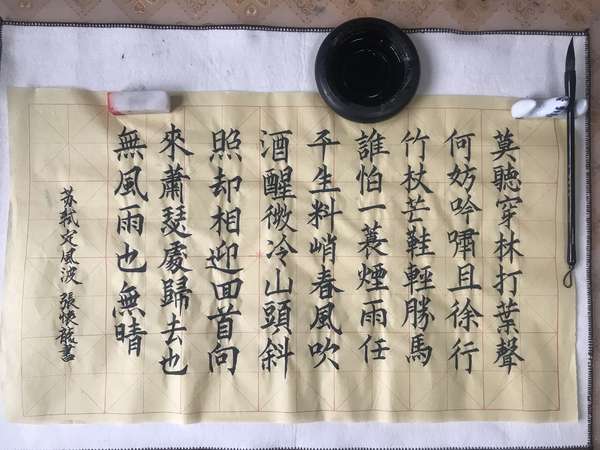 莫聽穿林打葉聲
何妨吟嘯且徐行
竹杖芒鞋輕勝馬
誰怕一蓑煙雨任
平生料峭春風吹
酒醒微冷山頭斜
照却相迎回首向
來蕭瑟處歸去也
無風雨也無晴
苏軾定風波 張書